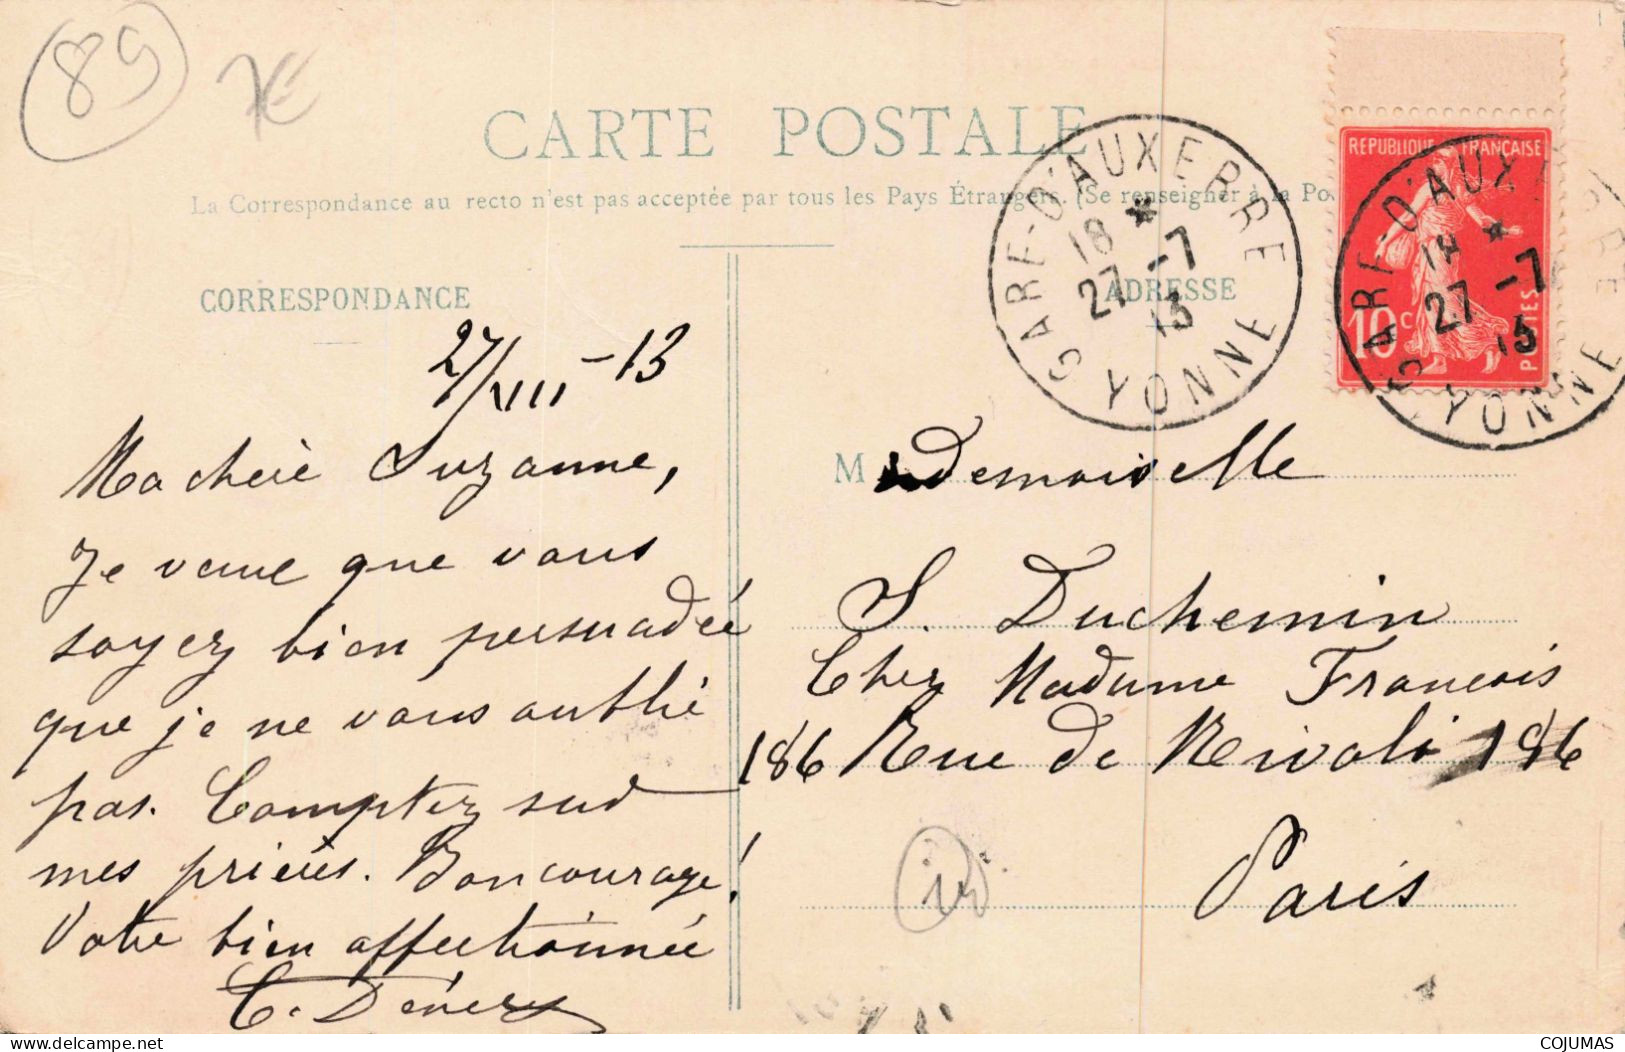 89
7€
CARTE POSTALE
La Correspondance au recto n'est pas acceptée par tous les Pays Étrangers. (Se renseigner à la Po
CORRESPONDANCE
ADRESSE
GARE-D'AUXERRE
18 *
27 -7
13
YONNE
REPUBLIQUE FRANÇAISE
10c
POSTES
GARE-D'AUXERRE
18 *
27 -7
13
YONNE
27/VIII-13
Ma chère Suzanne,
Je veux que vous
soyez bien persuadée
que je ne vous oublie
pas. Comptez sur
mes prières. Bon courage!
Votre bien affectionnée
M ademoiselle
S. Duchemin
Chez Madame Francois
186 Rue de Rivoli 186
Paris
COJUMAS